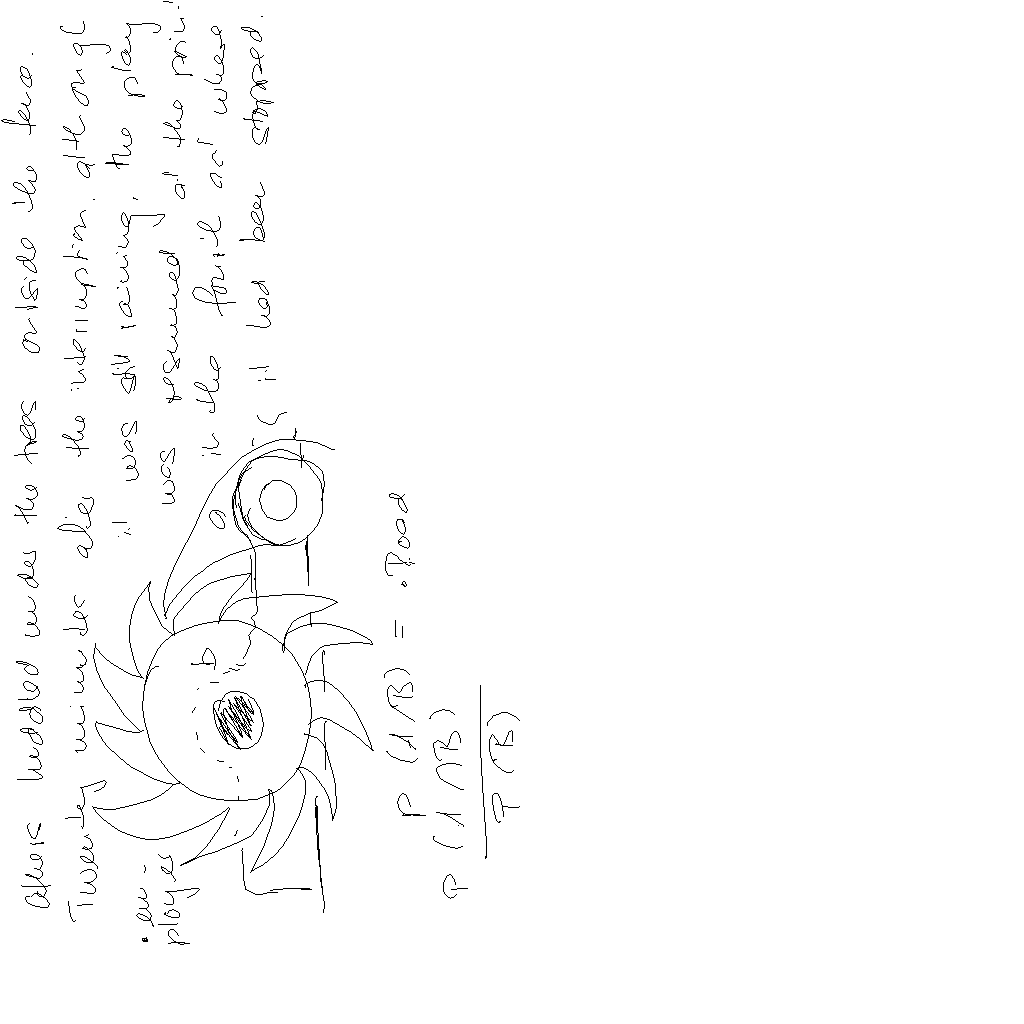 others huddled under the trees outside the fence.
Twenty minutes after the interruption. although
it was still raining, the play
was resumed at the point
in the fourth act where
it had been stopped.
• em-
ployes
D
O
P (A/B) = . Rood
P (A ∩ B)
P (B)